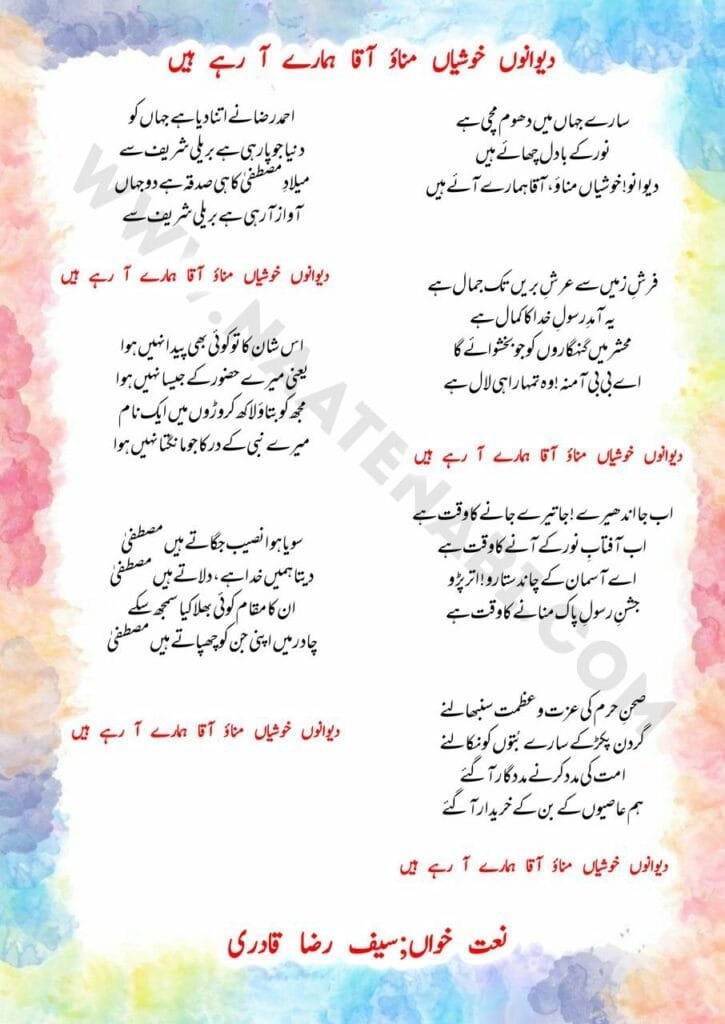 دیوانوں خوشیاں مناؤ آقا ہمارے آ رہے ہیں
سارے جہاں میں دھوم مچی ہے
نور کے بادل چھائے ہیں
دیوانو! خوشیاں مناؤ، آقا ہمارے آئے ہیں
فرشِ زمیں سے عرشِ بریں تک جمال ہے
یہ آمدِ رسولِ خدا کا کمال ہے
محشر میں گنہگاروں کو جو بخشوائے گا
اے بی بی آمنہ! وہ تمہارا ہی لال ہے
دیوانوں خوشیاں مناؤ آقا ہمارے آ رہے ہیں
اب جا اندھیرے! جا تیرے جانے کا وقت ہے
اب آفتابِ نور کے آنے کا وقت ہے
اے آسمان کے چاند ستارو! اتر پڑو
جشنِ رسولِ پاک منانے کا وقت ہے
صحنِ حرم کی عزت و عظمت سنبھالنے
گردن پکڑ کے سارے بُتوں کو نکالنے
امت کی مدد کرنے مددگار آ گئے
ہم عاصیوں کے بن کے خریدار آ گئے
دیوانوں خوشیاں مناؤ آقا ہمارے آ رہے ہیں
احمد رضا نے اتنا دیا ہے جہاں کو
دنیا جو پا رہی ہے بریلی شریف سے
میلادِ مصطفیٰ کا ہی صدقہ ہے دو جہاں
آواز آ رہی ہے بریلی شریف سے
دیوانوں خوشیاں مناؤ آقا ہمارے آ رہے ہیں
اس شان کا تو کوئی بھی پیدا نہیں ہوا
یعنی میرے حضور کے جیسا نہیں ہوا
مجھ کو بتاؤ لاکھ کروڑوں میں ایک نام
میرے نبی کے در کا جو مانگتا نہیں ہوا
سویا ہوا نصیب جگاتے ہیں مصطفیٰ
دیتا ہمیں خدا ہے، دلاتے ہیں مصطفیٰ
ان کا مقام کوئی بھلا کیا سمجھ سکے
چادر میں اپنی جن کو چھپاتے ہیں مصطفیٰ
دیوانوں خوشیاں مناؤ آقا ہمارے آ رہے ہیں
نعت خواں; سیف رضا قادری
WWW.NAATENART.COM